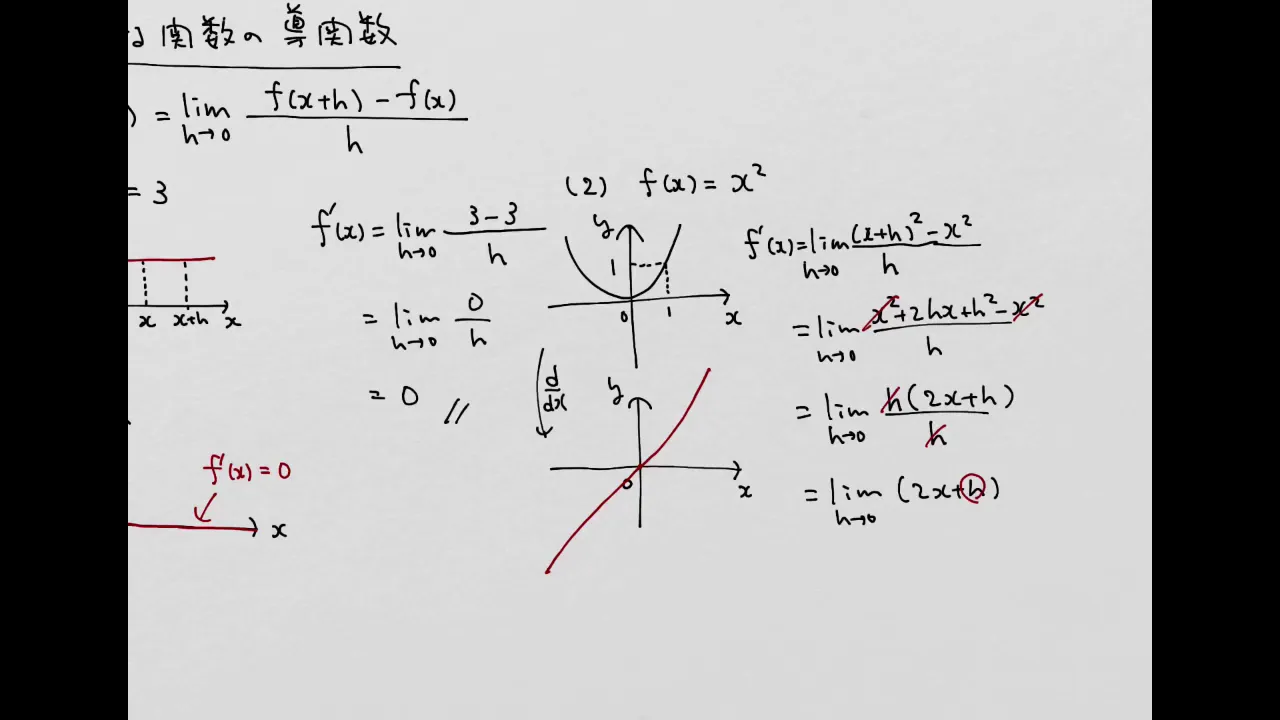 な関数の導関数
) = lim h→0 f(x+h) − f(x) / h
= 3
x x+h x
f'(x) = lim h→0 3 − 3 / h
= lim h→0 0 / h
= 0 //
f'(x) = 0
x
(2) f(x) = x²
y
1
0 1 x
d/dx
y
0 x
f'(x) = lim h→0 (x+h)² − x² / h
= lim h→0 x² + 2hx + h² − x² / h
= lim h→0 h(2x+h) / h
= lim h→0 (2x+h)